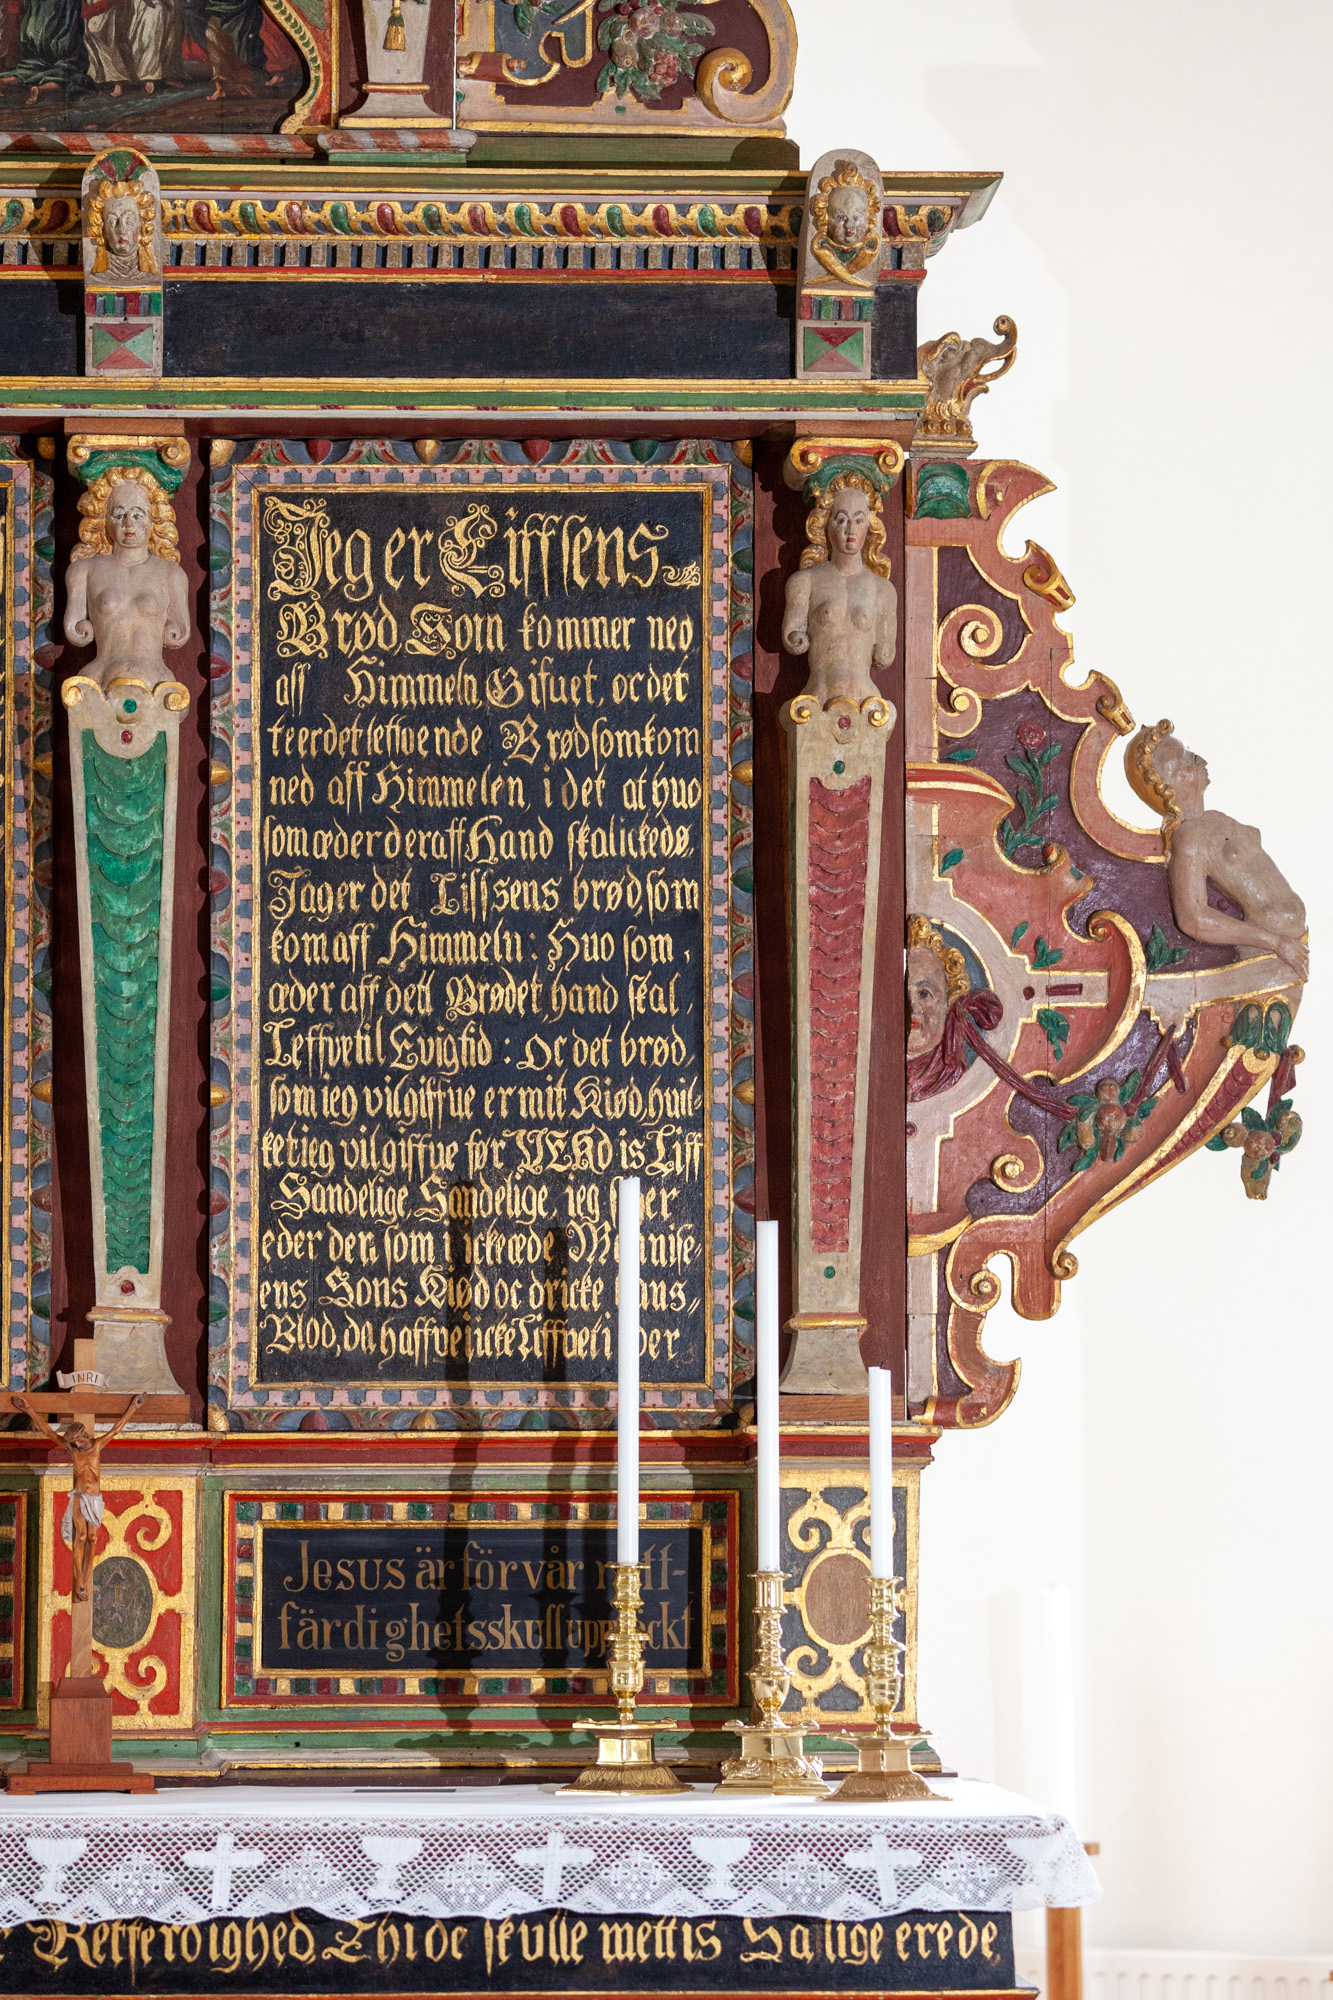 Jeg er Liffsens
Brød, Som kommer ned
aff Himmeln, Gifuet, oc det
te er det leffvende Brød som kom
ned aff Himmelen, i det at huo
som æder der aff Hand skal icke dø,
Jag er det Lissens brød, som
kom aff Himmeln: Huo som,
æder aff dett Brødet, hand skal,
Leffve til Evigtid: Oc det brød,
som ieg vil giffue er mit Kiød, huil-
ket ieg vil giffue før VERdis Liff
Sandelige, Sandelige, ieg
eder den, som icke æde Mennise-
ens Sons Kiød oc dricke hans
Blod, da haffve i icke Liffvet i
INRI
Jesus är för vår rätt-
färdighetsskull uppväckt
Retferdighed, Thi de skulle mettis Salige ere de,